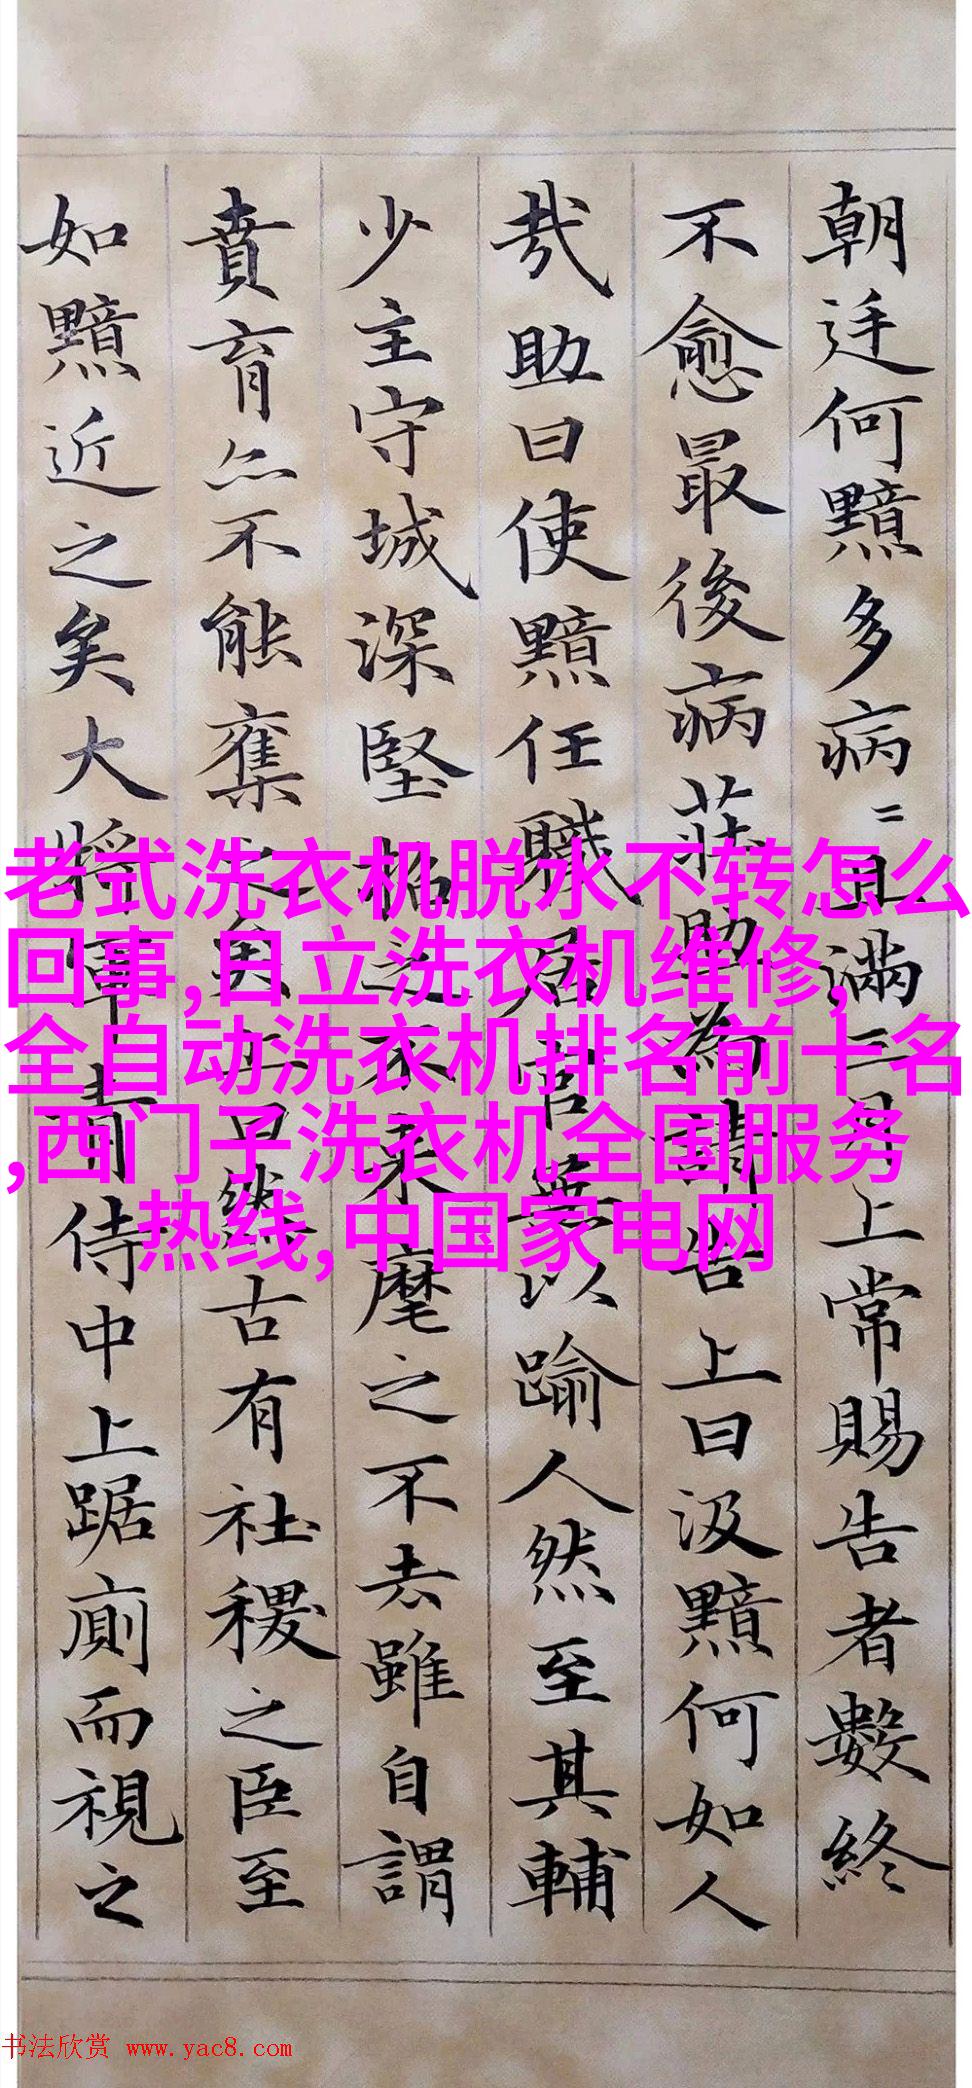 朝廷何黯多病〻且滿三月上常賜告者數終
不愈最後病莊助為請告上曰汲黯何如人
哉助曰使黯任職居官無以踰人然至其輔
少主守城深堅招之不来麾之不去雖自謂
賁育亦不能奪之矣上曰然古有社稷之臣至
如黯近之矣大將軍青侍中上踞廁而視之
老式洗衣机脱水不转怎么
回事,日立洗衣机维修,
全自动洗衣机排名前十名
,西门子洗衣机全国服务
热线,中国家电网
书法欣赏 www.yac8.com